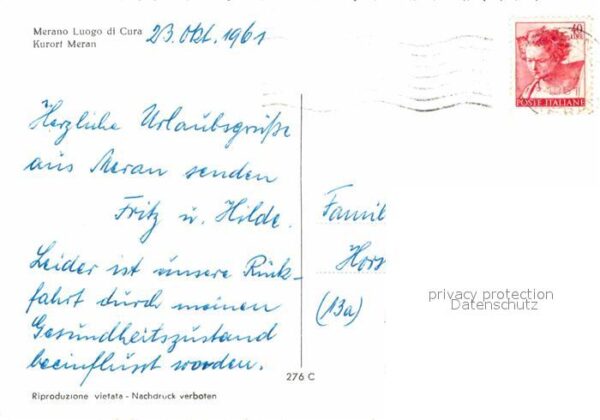 Merano Luogo di Cura
Kurort Meran
23. Okt. 1961
40
POSTE ITALIANE
Herzliche Urlaubsgrüße
aus Meran senden
Fritz u. Hilde.
Leider ist unsere Rück-
fahrt durch meinen
Gesundheitszustand
beeinflusst worden.
Famil
Hors
(13a)
privacy protection
Datenschutz
276 C
Riproduzione vietata - Nachdruck verboten